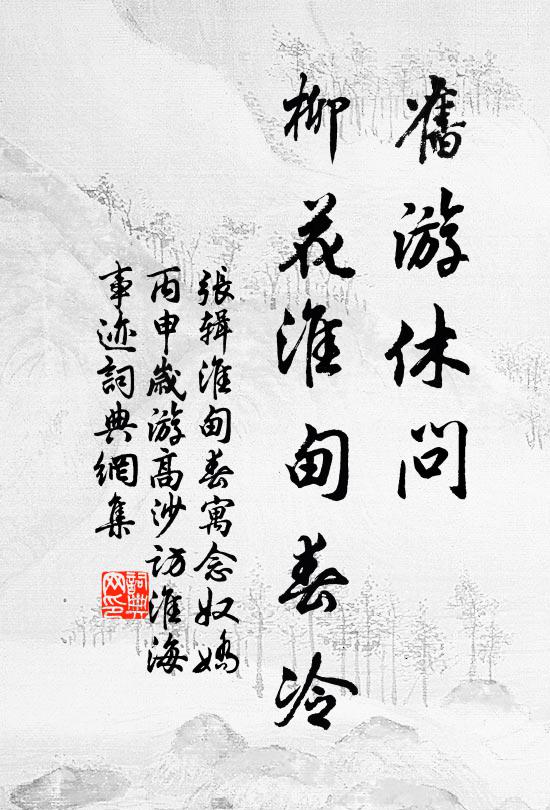 舊游休問
柳花淮甸春冷
張辑淮甸春寓念奴嬌
丙申歲游高沙訪淮海
事迹詞典網集
詞典
网印